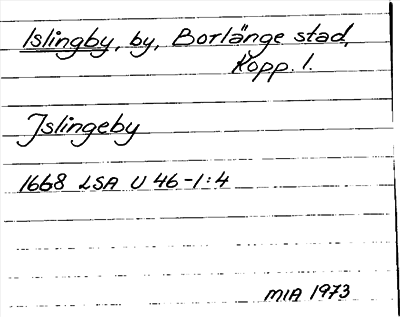 Islingby, by, Borlänge stad,
Kopp. l.
Islingeby
1668 LSA U 46-1:4
MIA 1973